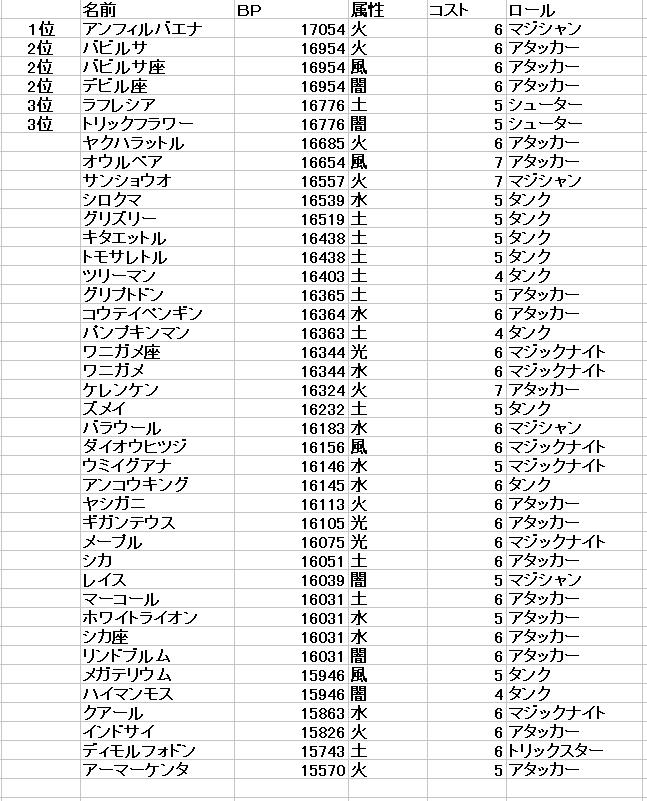 名前 BP 属性 コスト ロール
1位 アンフィルバエナ 17054 火 6 マジシャン
2位 バビルサ 16954 火 6 アタッカー
2位 バビルサ座 16954 風 6 アタッカー
2位 デビル座 16954 闇 6 アタッカー
3位 ラフレシア 16776 土 5 シューター
3位 トリックフラワー 16776 闇 5 シューター
ヤクハラットル 16685 火 6 アタッカー
オウルベア 16654 風 7 アタッカー
サンショウオ 16557 火 7 マジシャン
シロクマ 16539 水 5 タンク
グリズリー 16519 土 5 タンク
キタエットル 16438 土 5 タンク
トモサレトル 16438 土 5 タンク
ツリーマン 16403 土 4 タンク
グリプトドン 16365 土 5 アタッカー
コウテイペンギン 16364 水 6 アタッカー
パンプキンマン 16363 土 4 タンク
ワニガメ座 16344 光 6 マジックナイト
ワニガメ 16344 水 6 マジックナイト
ケレンケン 16324 火 7 アタッカー
ズメイ 16232 土 5 タンク
バラウール 16183 水 6 マジシャン
ダイオウヒツジ 16156 風 6 マジックナイト
ウミイグアナ 16146 水 5 マジックナイト
アンコウキング 16145 水 6 タンク
ヤシガニ 16113 火 6 アタッカー
ギガンテウス 16105 光 6 アタッカー
メープル 16075 光 6 マジックナイト
シカ 16051 土 6 アタッカー
レイス 16039 闇 5 マジシャン
マーコール 16031 土 6 アタッカー
ホワイトライオン 16031 水 5 アタッカー
シカ座 16031 水 6 アタッカー
リンドブルム 16031 闇 6 アタッカー
メガテリウム 15946 風 5 タンク
ハイマンモス 15946 闇 4 タンク
クアール 15863 水 6 マジックナイト
インドサイ 15826 火 6 アタッカー
ディモルフォドン 15743 土 6 トリックスター
アーマーケンタ 15570 火 5 アタッカー